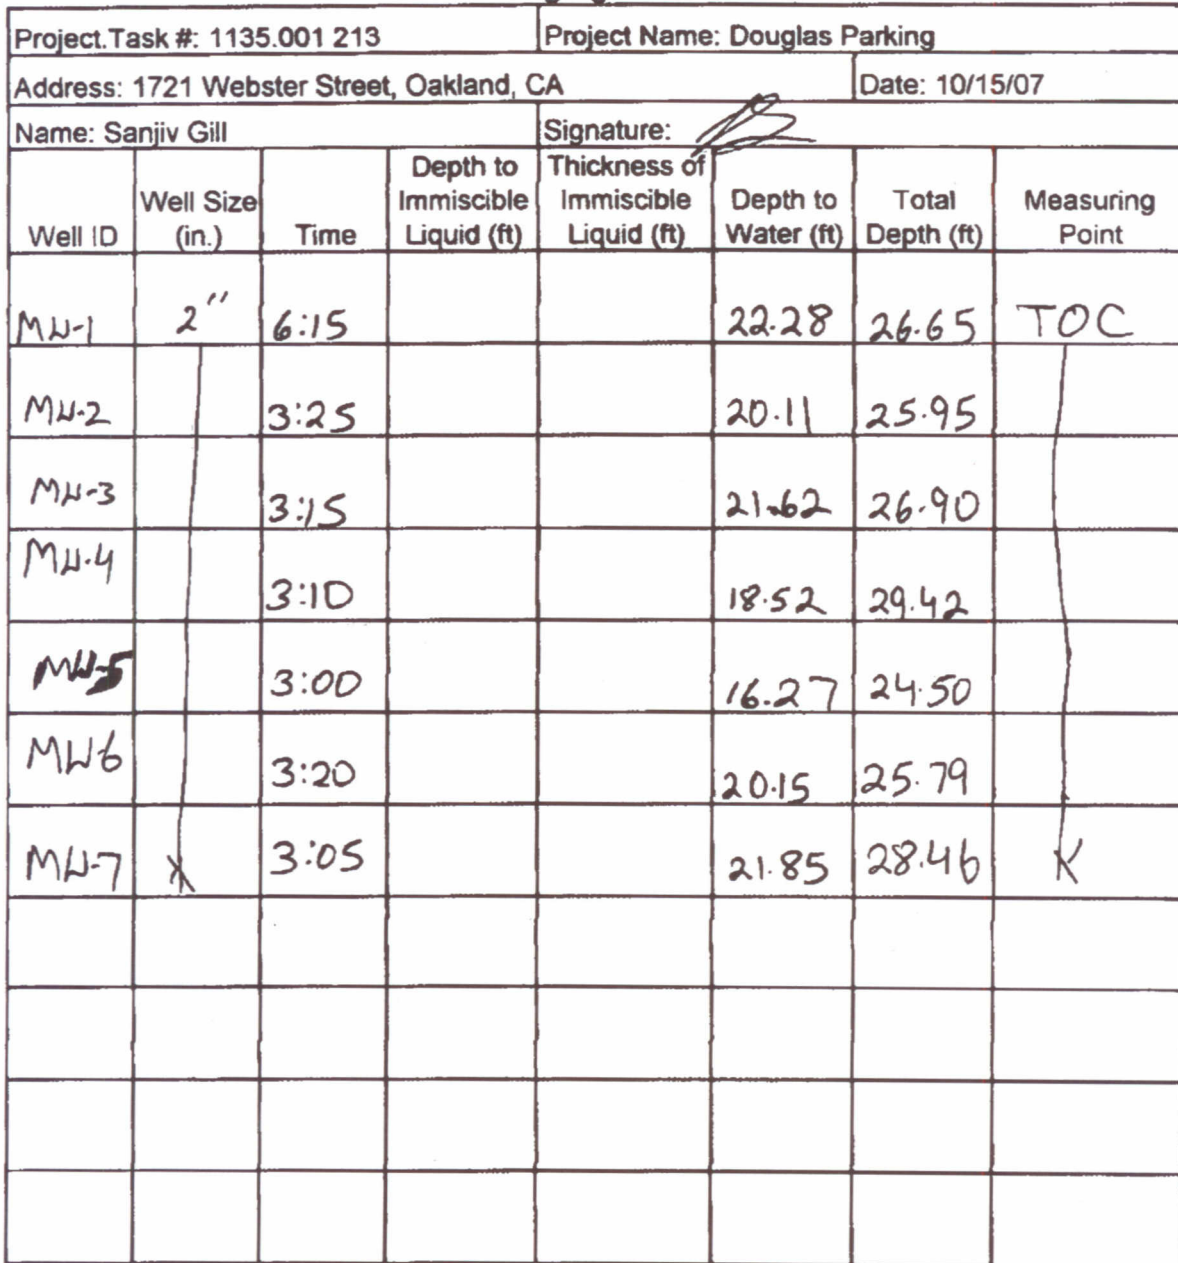 Project.Task #: 1135.001 213 Project Name: Douglas Parking
Address: 1721 Webster Street, Oakland, CA Date: 10/15/07
Name: Sanjiv Gill Signature:
Well ID Well Size (in.) Time Depth to Immiscible Liquid (ft) Thickness of Immiscible Liquid (ft) Depth to Water (ft) Total Depth (ft) Measuring Point
MW-1 2" 6:15 22.28 26.65 TOC
MW-2 3:25 20.11 25.95
MW-3 3:15 21.62 26.90
MW-4 3:10 18.52 29.42
MW-5 3:00 16.27 24.50
MW6 3:20 20.15 25.79
MW-7 3:05 21.85 28.46